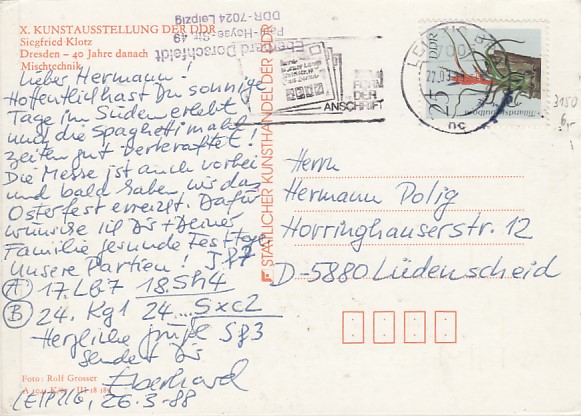 X. KUNSTAUSSTELLUNG DER DDR
Siegfried Klotz
Dresden – 40 Jahre danach
Mischtechnik
Eberhard Dorschfeldt
DDR-7024 Leipzig
Lieber Hermann!
Hoffentlich hast Du sonnige
Tage im Süden erlebt
und die Spaghettimahl-
zeiten gut verkraftet!
Die Messe ist auch vorbei
und bald haben wir das
Osterfest erreicht. Dafür
wünsche ich Dir + Deiner
Familie gesunde Festtage
Unsere Partien!
A 17. Lb7 18. Sh4
B 24. Kg1 24. ... Sxc2
Herzliche Sg3
sendet Dir
Eberhard
LEIPZIG, 26.3.88
Foto: Rolf Grosser
STAATLICHER KUNSTHANDEL DER DDR
FORM
DER
ANSCHRIFT
DDR
25
3150
6,-
Herrn
Hermann Polig
Horringhauserstr. 12
D-5880 Lüdenscheid